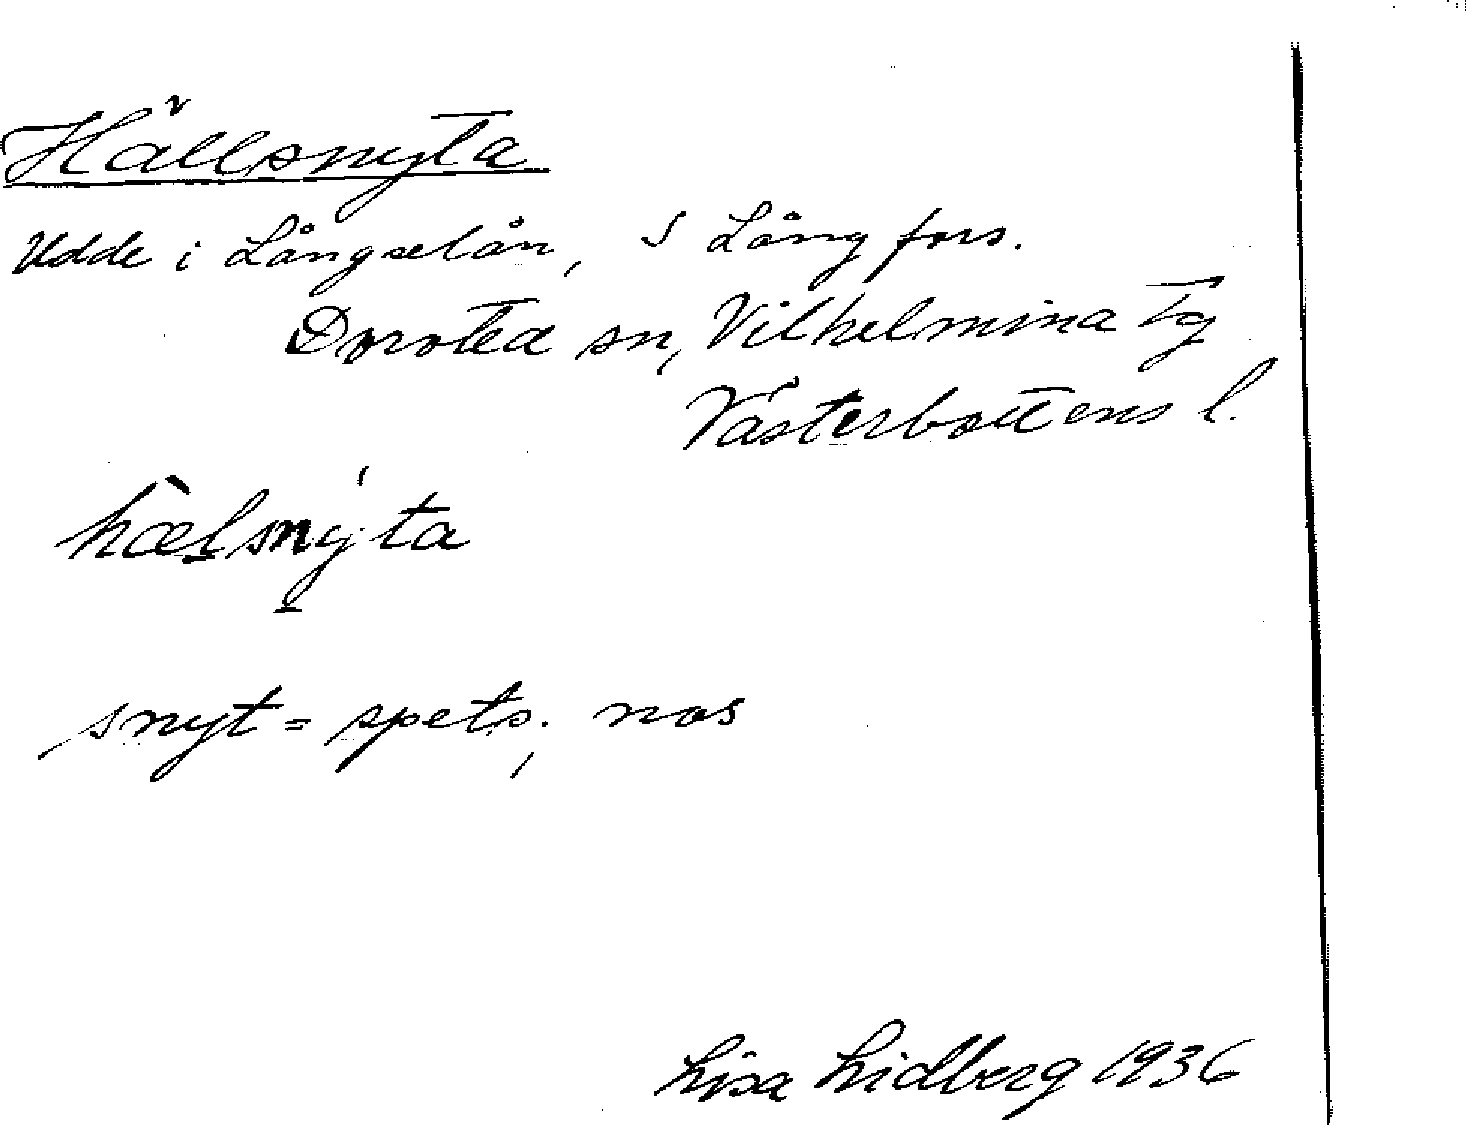 Hällsnyta
Udde i Långselån, S Långfors.
Dorotea sn, Vilhelmina tg
Västerbottens l.
hæ̀lsný̱ta
snyt = spets, nos
Lisa Lidberg 1936